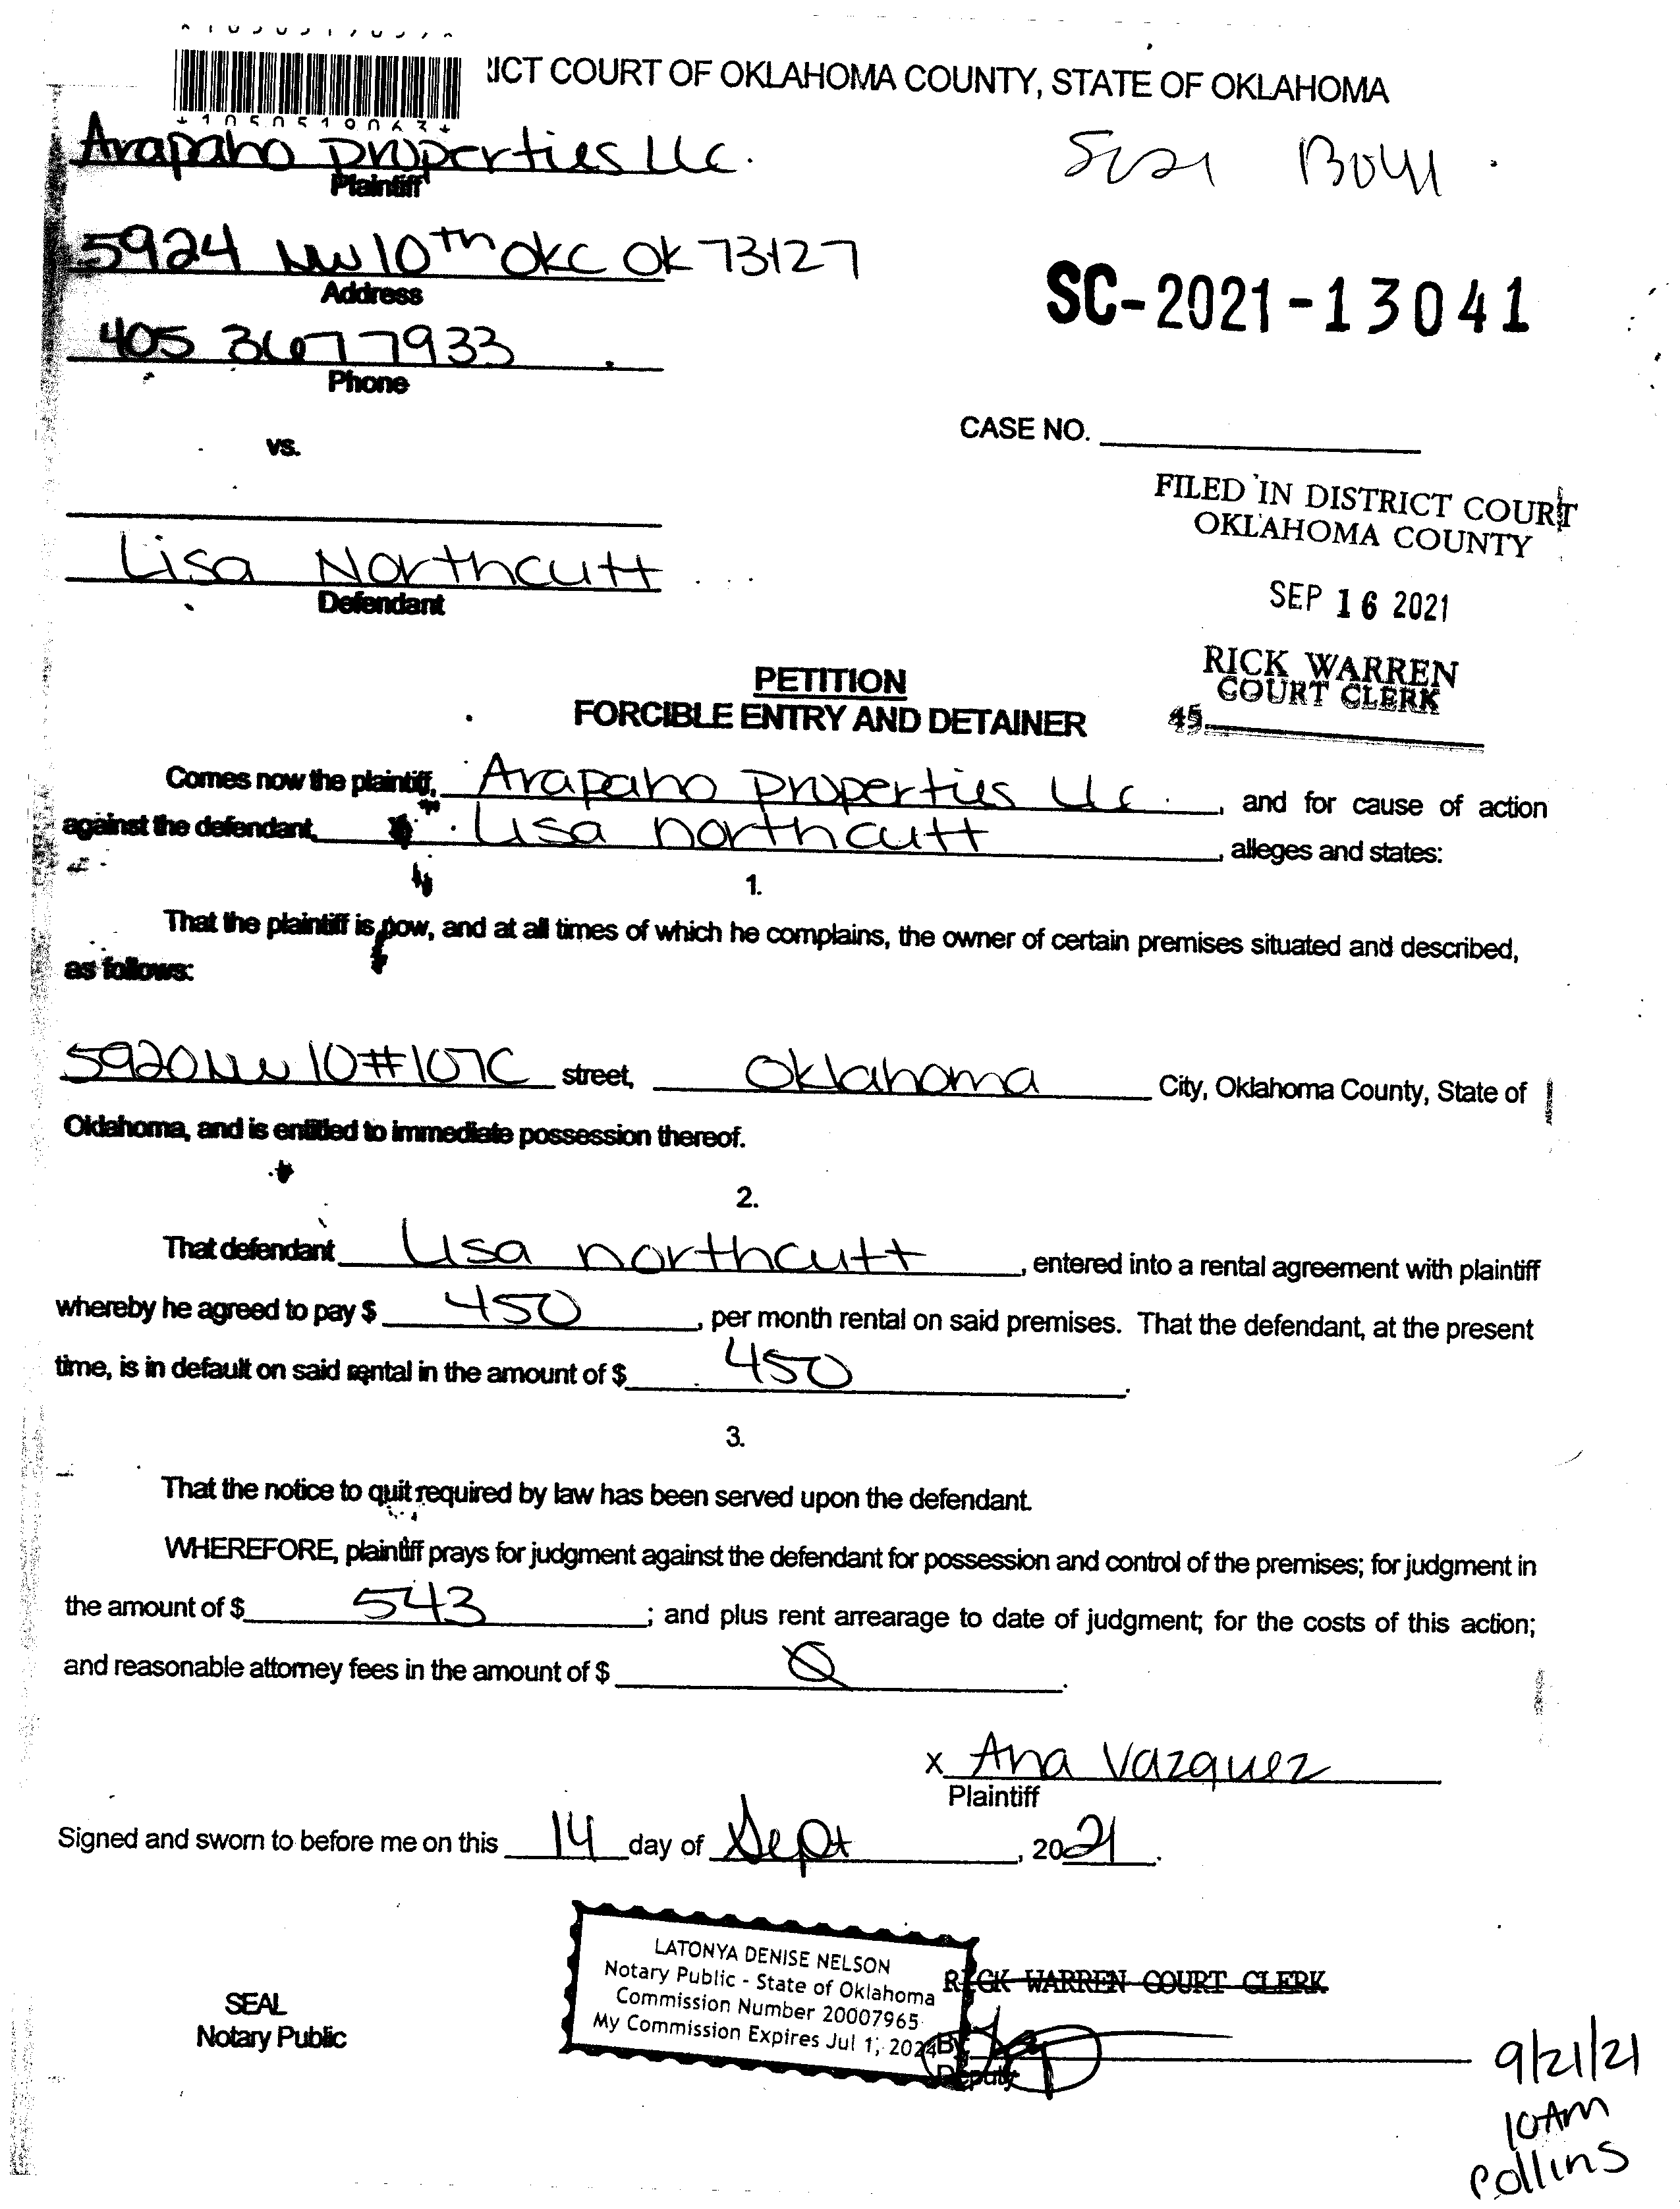 *1050519063*
ICT COURT OF OKLAHOMA COUNTY, STATE OF OKLAHOMA
Arapaho properties LLc.
Plaintiff
5924 NW 10th OKC OK 73127
Address
SC-2021-13041
405 367 7933
Phone
CASE NO.
vs.
FILED IN DISTRICT COURT
OKLAHOMA COUNTY
Lisa Northcutt
Defendant
SEP 16 2021
RICK WARREN
COURT CLERK
45
PETITION
FORCIBLE ENTRY AND DETAINER
Comes now the plaintiff, Arapaho properties LLc. , and for cause of action
against the defendant, Lisa northcutt , alleges and states:
1.
That the plaintiff is now, and at all times of which he complains, the owner of certain premises situated and described,
as follows:
5920 NW 10 #107C street, Oklahoma City, Oklahoma County, State of
Oklahoma, and is entitled to immediate possession thereof.
2.
That defendant Lisa northcutt , entered into a rental agreement with plaintiff
whereby he agreed to pay $ 450 , per month rental on said premises. That the defendant, at the present
time, is in default on said rental in the amount of $ 450 .
3.
That the notice to quit required by law has been served upon the defendant.
WHEREFORE, plaintiff prays for judgment against the defendant for possession and control of the premises; for judgment in
the amount of $ 543 ; and plus rent arrearage to date of judgment; for the costs of this action;
and reasonable attorney fees in the amount of $ 0 .
x Ana Vazquez
Plaintiff
Signed and sworn to before me on this 14 day of Sept , 2021 .
LATONYA DENISE NELSON
Notary Public - State of Oklahoma
Commission Number 20007965
My Commission Expires Jul 1, 2024
RICK WARREN COURT CLERK
SEAL
Notary Public
By
Deputy
9/21/21
10AM
Collins